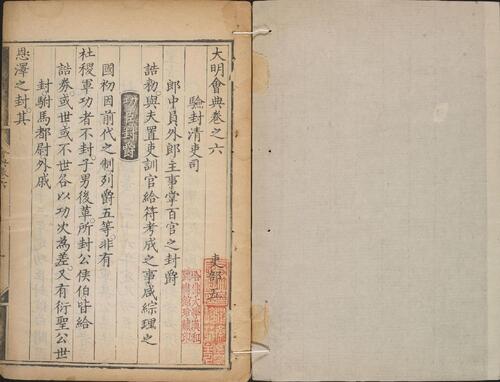 大明會典卷之六
吏部五
驗封清吏司
郎中員外郎主事掌百官之封爵
誥勑與夫置吏訓官給符考成之事咸綜理之
功臣封爵
國初因前代之制列爵五等非有
社稷軍功者不封子男後革所封公侯伯皆給
誥券或世或不世各以功次為差又有衍聖公世
封駙馬都尉外戚
恩澤之封其